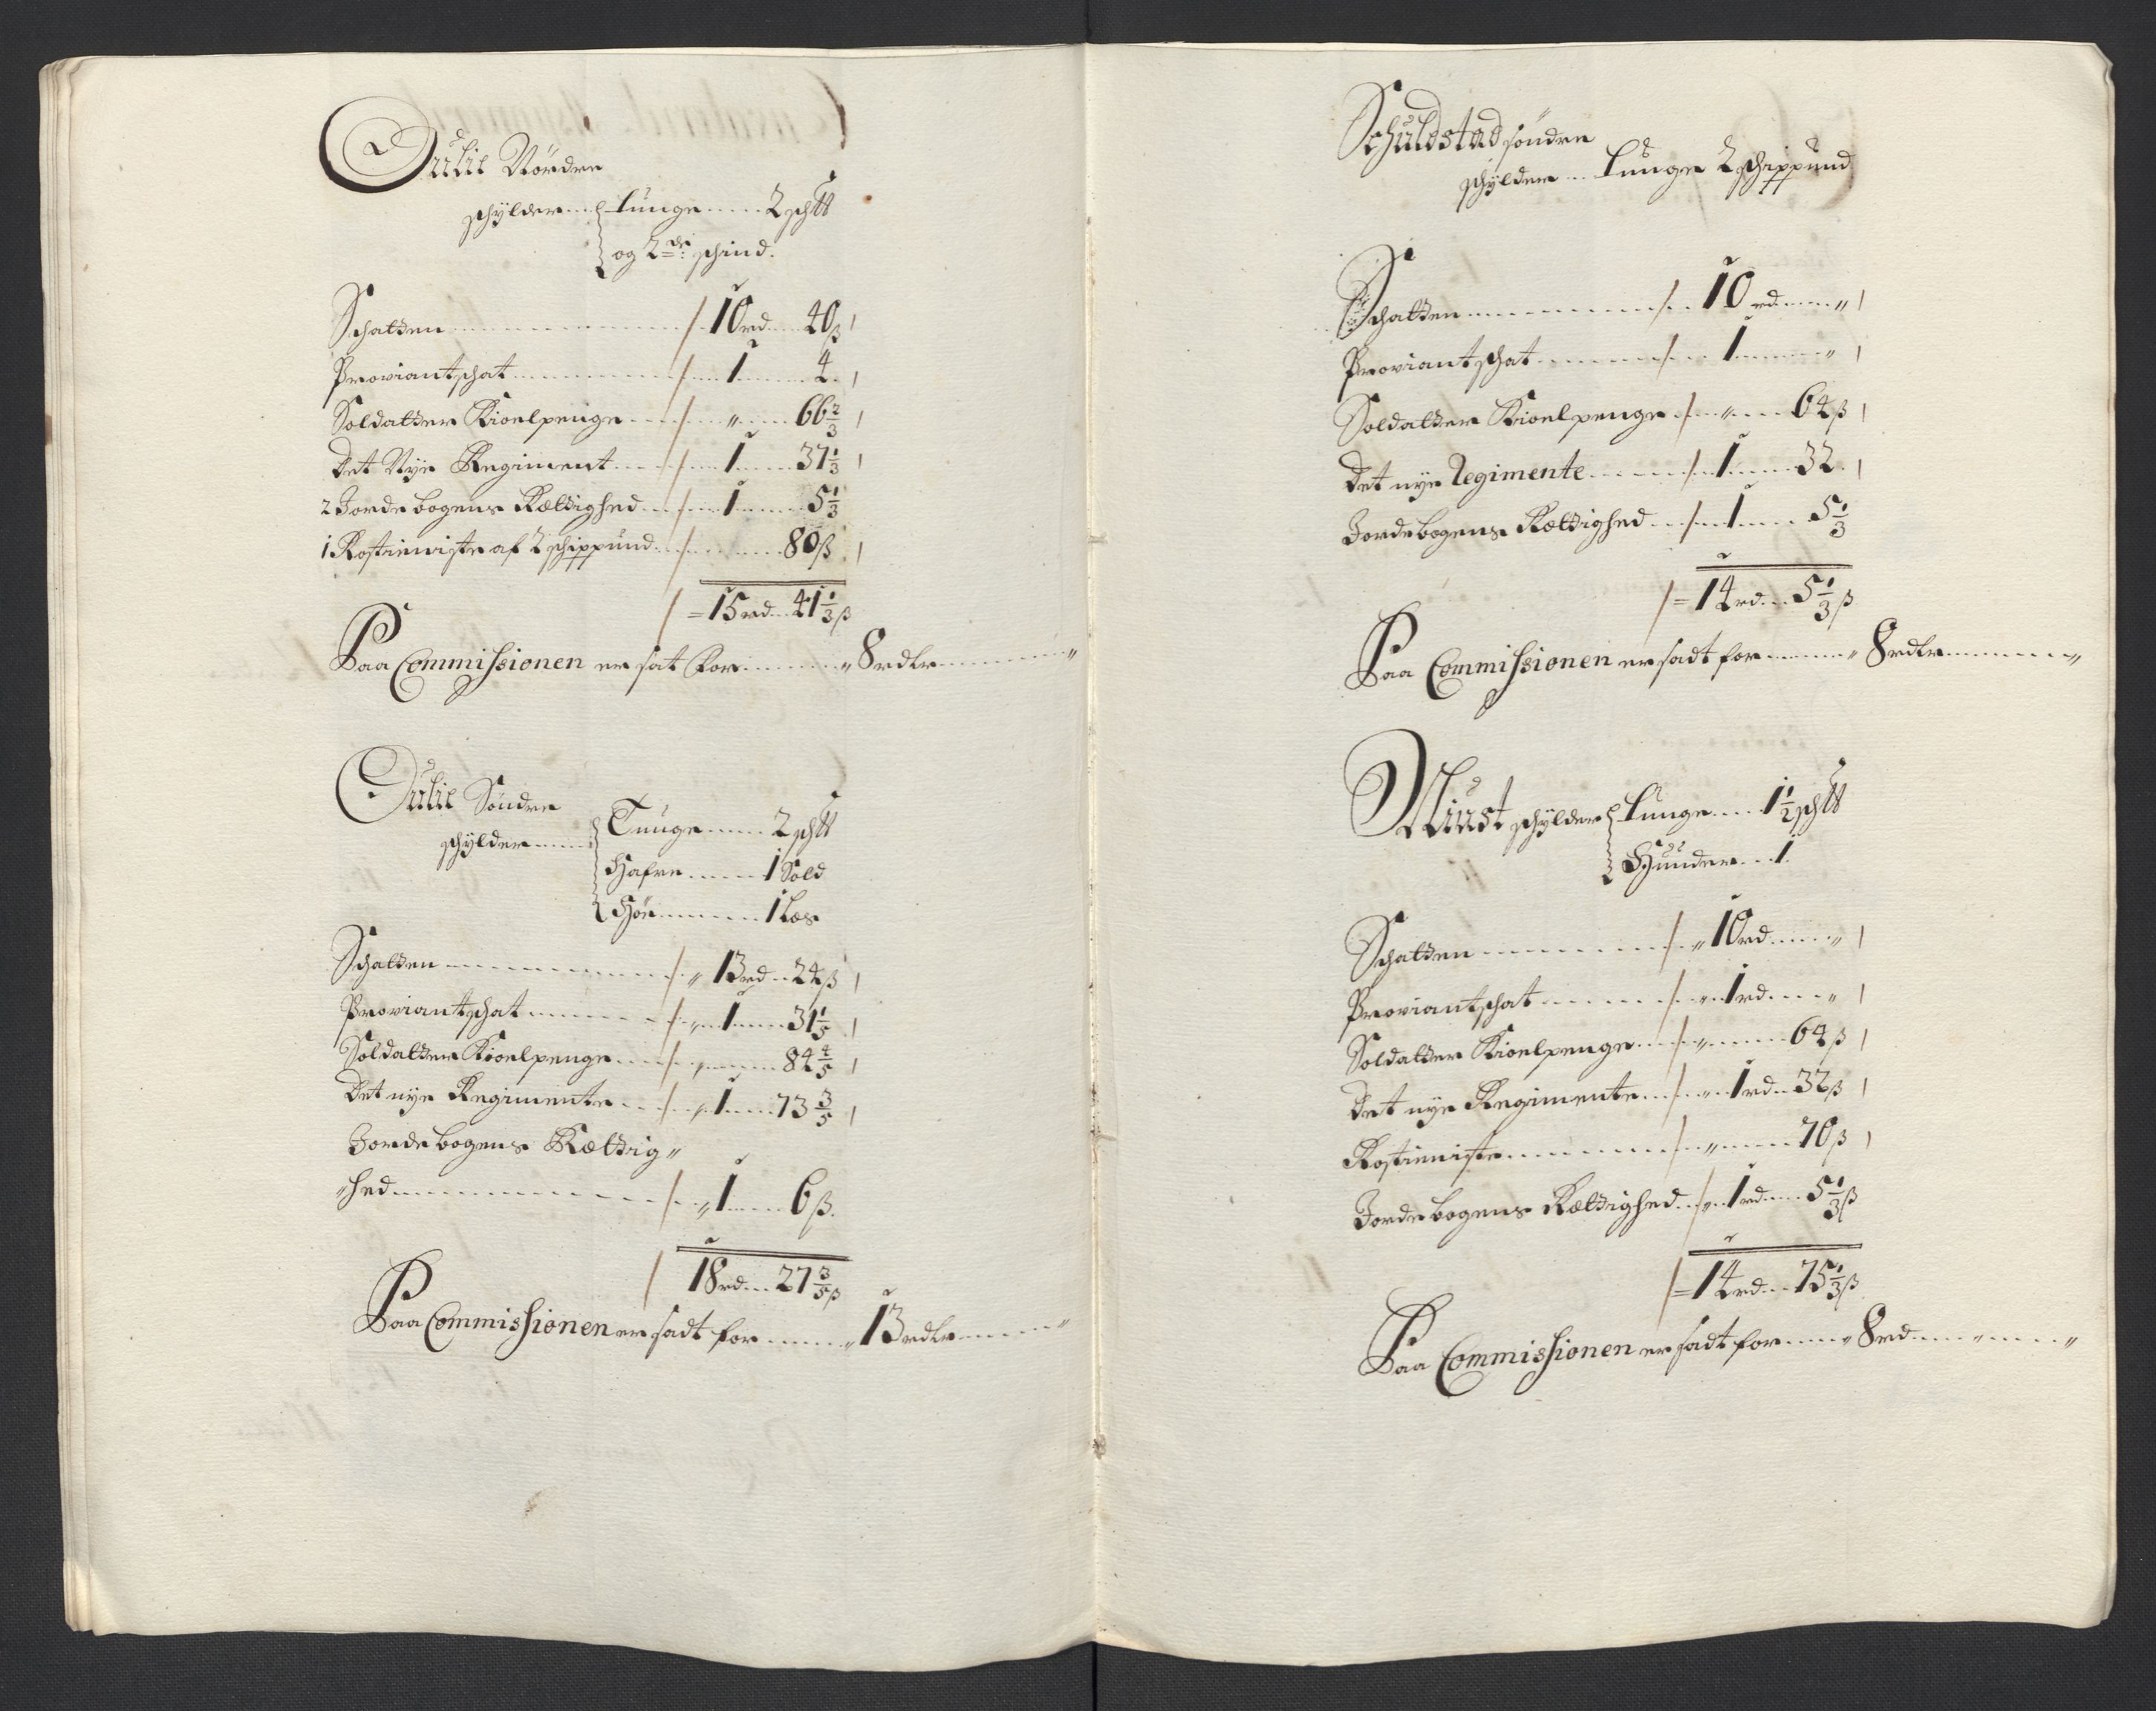 Dulie Nördre
schylder .... Tunge ..... 2 sch℔
og 2de schind.
Schatten / 10 rd .... 40 ß
Proviantschat / 1 .... 4
Soldatter Kioelpenge / „ .... 66 2/3
Det Nÿe Regiment / 1 .... 37 1/3
2 Jordebogens Rettighed / 1 .... 5 1/3
1 Rostieniste af 2 schippund / .... 80 ß
/ = 15 rd ... 41 1/3 ß
Paa Commissionen er sat for .... „ 8 rdlr .... „
Dulie Söndre
schylder
Tunge .... 2 sch℔
Hafre .... 1 Sold
Höe .... 1 Læs
Schatten / „ 13 rd .. 24 ß
Proviantschat / „ 1 .... 31 1/5
Soldatter Kioelpenge / „ .... 84 4/5
Det nye Regimente / „ 1 .... 73 3/5
Jordebogens Rettig„
„hed / „ 1 .... 6 ß.
/ 18 rd ... 27 3/5 ß
Paa Commissionen er sadt for .... „ 13 rdlr .... „
Schuldstad söndre
schÿlder ... Tunge 2 schippund
Schatten / .. 10 rd .... „
Proviantschat / 1 .... „
Soldatter Kioelpenge / „ .... 64 ß
Det nye Regimente / 1 .... 32
Jordebogens Rettighed / 1 .... 5 1/3
/ = 14 rd ... 5 1/3 ß
Paa Commissionen er sadt for .... „ 8 rdlr .... „
Miust schylder Tunge .... 1 1/2 sch℔
Huuder ... 1.
Schatten / „ 10 rd .... „
Proviantschat / „ 1 rd .... „
Soldatter Kioelpenge / „ .... 64 ß
Det nye Regimente / „ 1 rd .. 32 ß
Rostieniste / „ .... 70 ß
Jordebogens Rettighed / „ 1 rd ... 5 1/3 ß
/ = 14 rd ... 75 1/3 ß
Paa Commissionen er sadt for .... „ 8 rd .... „